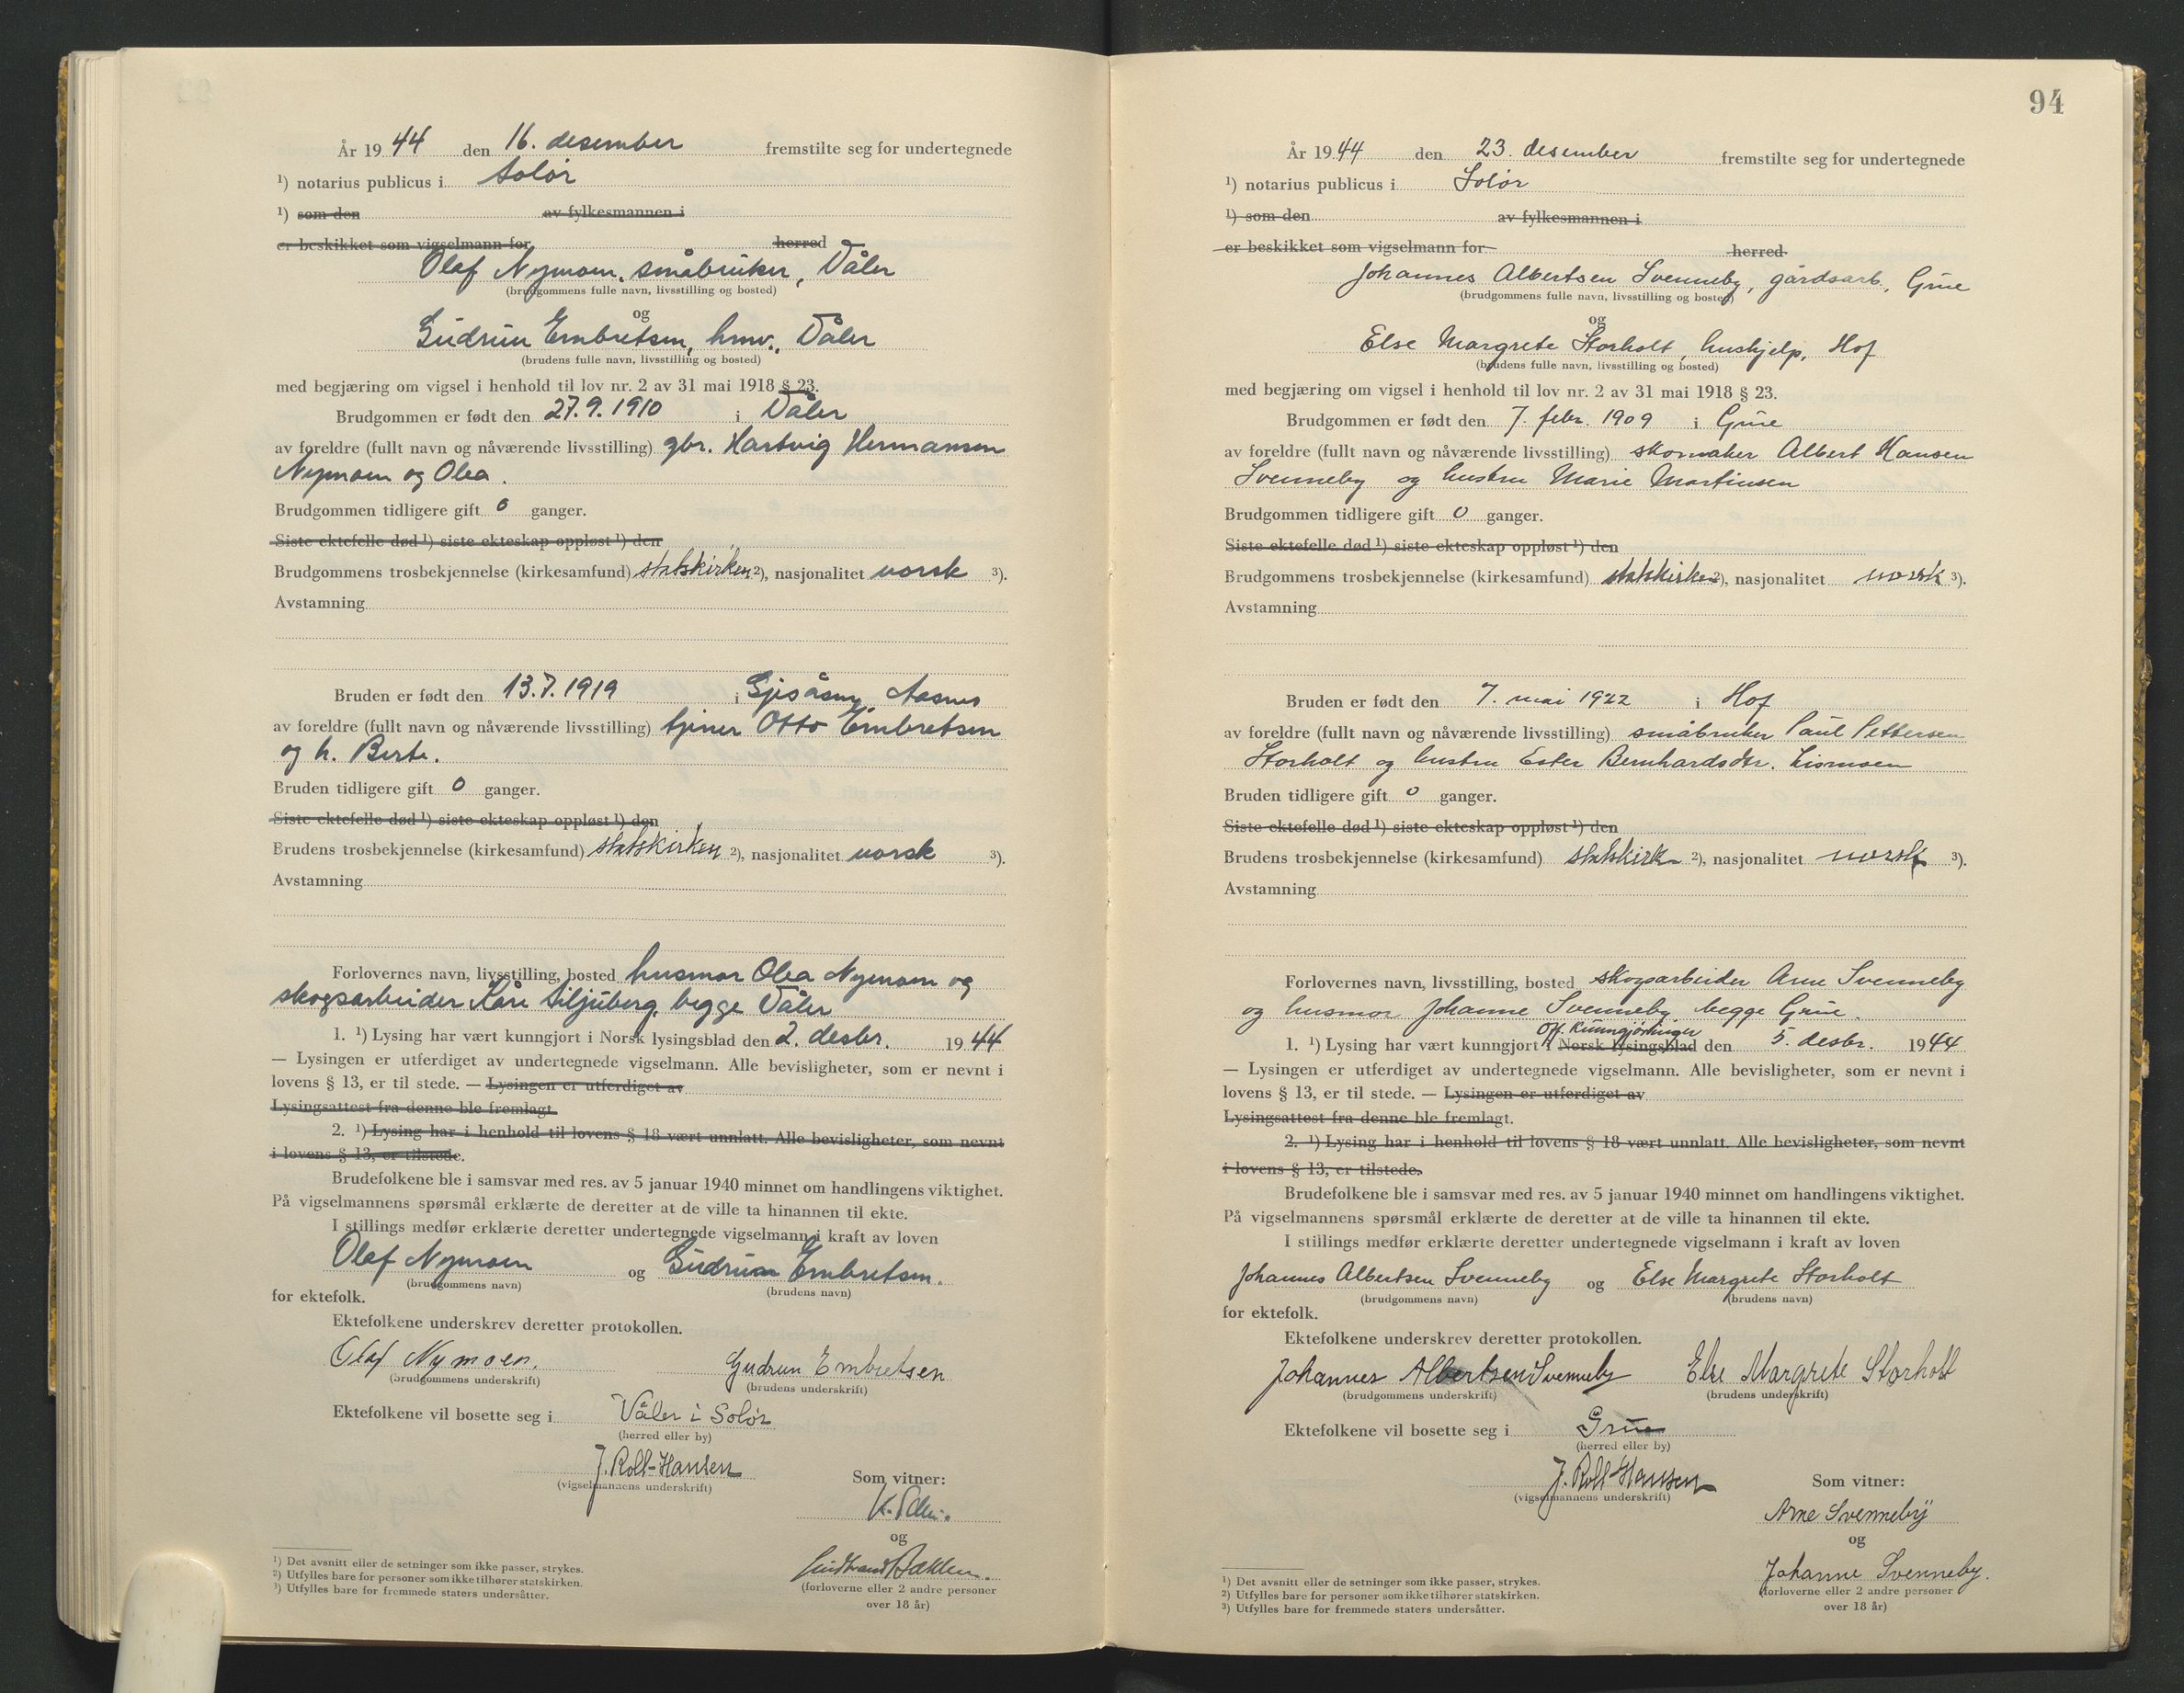 År 19 44 den 16. desember fremstilte seg for undertegnede
¹) notarius publicus i Solør
¹) som den av fylkesmannen i
er beskikket som vigselmann for herred
Olaf Nymoen, småbruker, Våler
(brudgommens fulle navn, livsstilling og bosted)
og
Gudrun Embretsen, hmv., Våler
(brudens fulle navn, livsstilling og bosted)
med begjæring om vigsel i henhold til lov nr. 2 av 31 mai 1918 § 23.
Brudgommen er født den 27.9.1910 i Våler
av foreldre (fullt navn og nåværende livsstilling) gbr. Hartvig Hermansen
Nymoen og Olea.
Brudgommen tidligere gift 0 ganger.
Siste ektefelle død ¹) siste ekteskap oppløst ¹) den
Brudgommens trosbekjennelse (kirkesamfund) statskirken ²), nasjonalitet norsk ³).
Avstamning
Bruden er født den 13.7.1919 i Gjesåsen Aasnes
av foreldre (fullt navn og nåværende livsstilling) tjener Otto Embretsen
og h. Berte.
Bruden tidligere gift 0 ganger.
Siste ektefelle død ¹) siste ekteskap oppløst ¹) den
Brudens trosbekjennelse (kirkesamfund) statskirken ²), nasjonalitet norsk ³).
Avstamning
Forlovernes navn, livsstilling, bosted husmor Olea Nymoen og
skogsarbeider Kåre Siljuberg, begge Våler
1. ¹) Lysing har vært kunngjort i Norsk lysingsblad den 2. desbr. 19 44
— Lysingen er utferdiget av undertegnede vigselmann. Alle bevisligheter, som er nevnt i
lovens § 13, er til stede. — Lysingen er utferdiget av
Lysingsattest fra denne ble fremlagt.
2. ¹) Lysing har i henhold til lovens § 18 vært unnlatt. Alle bevisligheter, som nevnt
i lovens § 13, er tilstede.
Brudefolkene ble i samsvar med res. av 5 januar 1940 minnet om handlingens viktighet.
På vigselmannens spørsmål erklærte de deretter at de ville ta hinannen til ekte.
I stillings medfør erklærte deretter undertegnede vigselmann i kraft av loven
Olaf Nymoen og Gudrun Embretsen.
(brudgommens navn) (brudens navn)
for ektefolk.
Ektefolkene underskrev deretter protokollen.
Olaf Nymoen. Gudrun Embretsen
(brudgommens underskrift) (brudens underskrift)
Ektefolkene vil bosette seg i Våler i Solør
(herred eller by)
J. Roll-Hansen
(vigselmannens underskrift)
Som vitner:
K.
og
Gudbrand
(forloverne eller 2 andre personer
over 18 år)
¹) Det avsnitt eller de setninger som ikke passer, strykes.
²) Utfylles bare for personer som ikke tilhører statskirken.
³) Utfylles bare for fremmede staters undersåtter.
94
År 19 44 den 23. desember fremstilte seg for undertegnede
¹) notarius publicus i Solør
¹) som den av fylkesmannen i
er beskikket som vigselmann for herred.
Johannes Albertsen Svenneby, gårdsarb., Grue
(brudgommens fulle navn, livsstilling og bosted)
og
Else Margrete Storholt, hushjelp, Hof
(brudens fulle navn, livsstilling og bosted)
med begjæring om vigsel i henhold til lov nr. 2 av 31 mai 1918 § 23.
Brudgommen er født den 7. febr. 1909 i Grue
av foreldre (fullt navn og nåværende livsstilling) skomaker Albert Hansen
Svenneby og hustru Marie Martinsen
Brudgommen tidligere gift 0 ganger.
Siste ektefelle død ¹) siste ekteskap oppløst ¹) den
Brudgommens trosbekjennelse (kirkesamfund) statskirken ²), nasjonalitet norsk ³).
Avstamning
Bruden er født den 7. mai 1922 i Hof
av foreldre (fullt navn og nåværende livsstilling) småbruker Paul Pettersen
Storholt og hustru Ester Bernhardsdtr. Lismoen
Bruden tidligere gift 0 ganger.
Siste ektefelle død ¹) siste ekteskap oppløst ¹) den
Brudens trosbekjennelse (kirkesamfund) statskirk ²), nasjonalitet norsk ³).
Avstamning
Forlovernes navn, livsstilling, bosted skogsarbeider Arne Svenneby
og husmor Johanne Svenneby begge Grue.
Off. Kunngjøringer
1. ¹) Lysing har vært kunngjort i Norsk lysingsblad den 5. desbr. 19 44
— Lysingen er utferdiget av undertegnede vigselmann. Alle bevisligheter, som er nevnt i
lovens § 13, er til stede. — Lysingen er utferdiget av
Lysingsattest fra denne ble fremlagt.
2. ¹) Lysing har i henhold til lovens § 18 vært unnlatt. Alle bevisligheter, som nevnt
i lovens § 13, er tilstede.
Brudefolkene ble i samsvar med res. av 5 januar 1940 minnet om handlingens viktighet.
På vigselmannens spørsmål erklærte de deretter at de ville ta hinannen til ekte.
I stillings medfør erklærte deretter undertegnede vigselmann i kraft av loven
Johannes Albertsen Svenneby og Else Margrete Storholt
(brudgommens navn) (brudens navn)
for ektefolk.
Ektefolkene underskrev deretter protokollen.
Johannes Albertsen Svenneby Else Margrete Storholt
(brudgommens underskrift) (brudens underskrift)
Ektefolkene vil bosette seg i Grue
(herred eller by)
J. Roll-Hansen
(vigselmannens underskrift)
Som vitner:
Arne Svenneby
og
Johanne Svenneby.
(forloverne eller 2 andre personer
over 18 år)
¹) Det avsnitt eller de setninger som ikke passer, strykes.
²) Utfylles bare for personer som ikke tilhører statskirken.
³) Utfylles bare for fremmede staters undersåtter.